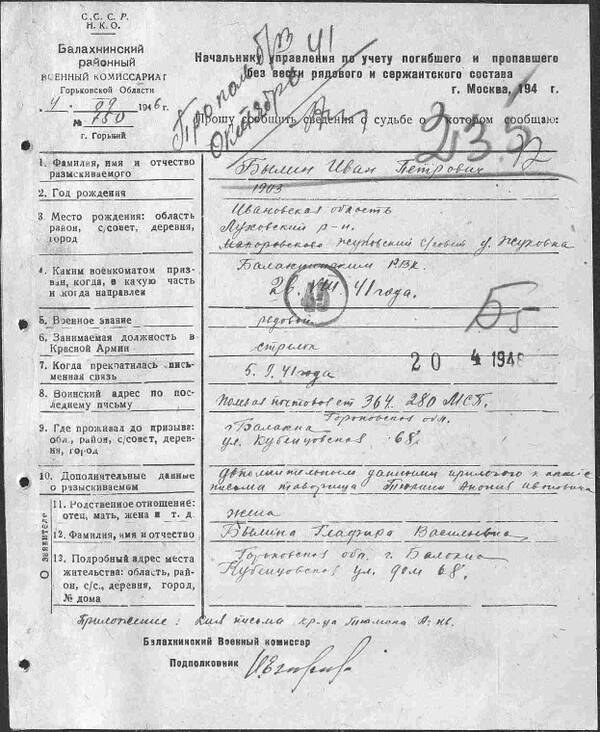 С.С.С.Р.
Н.К.О.
Балахнинский
районный
ВОЕННЫЙ КОМИССАРИАТ
Горьковской Области
4 09 1946 г.
№ 750
г. Горький
Пропал б/в 41
Октябрь
Начальнику управления по учету погибшего и пропавшего
без вести рядового и сержантского состава
г. Москва, 194 г.
Прошу сообщить сведения о судьбе о котором сообщаю:
1. Фамилия, имя и отчество разыскиваемого
Былин Иван Петрович
2. Год рождения
1903
3. Место рождения: область район, с/совет, деревня, город
Ивановская область
Луховский р-н.
Жуковский с/совет д. Жуковка
4. Каким военкоматом призван, когда, в какую часть и когда направлен
Балахнинским РВК.
26. VIII. 41 года.
5. Военное звание
редовой
6. Занимаемая должность в Красной Армии
стрелок
Б5
20 4 1948
7. Когда прекратилась письменная связь
41 года
8. Воинский адрес по последнему письму
Полевая почтовая ст 364. 280 МСП.
9. Где проживал до призыва: обл., район, с/совет, деревня, город
Горьковская обл.
г Балахна
ул. Кубенцовская 68.
10. Дополнительные данные о разыскиваемом
письма товарища
О заявителе
11. Родственное отношение: отец, мать, жена и т. д.
жена
12. Фамилия, имя и отчество
Былина Глафира Васильевна
13. Подробный адрес места жительства: область, район, с/с., деревня, город, № дома
Горьковская обл. г. Балахна
Кубенцовская ул. дом 68.
Приложение: письма
Балахнинский Военный комиссар
Подполковник